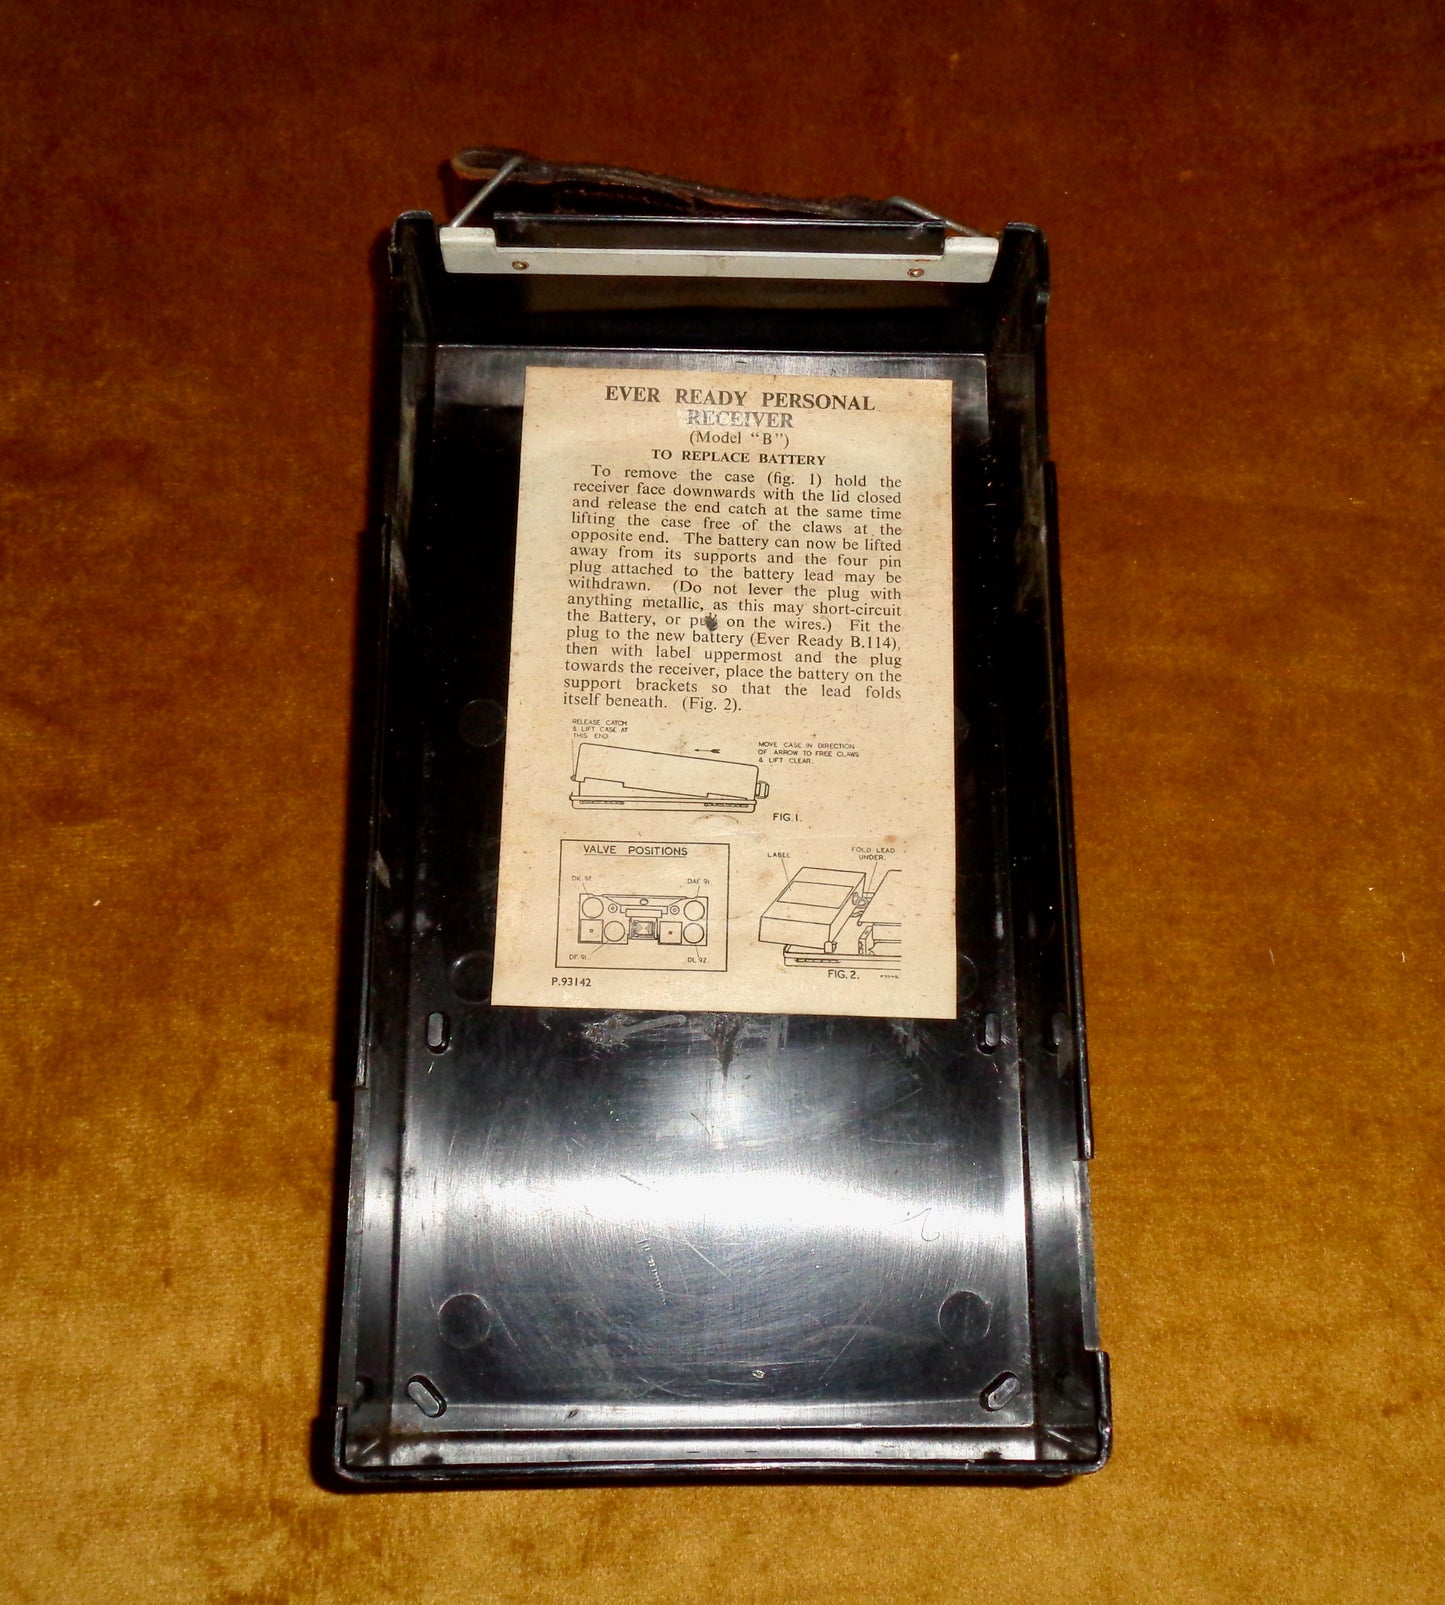 EVER READY PERSONAL
RECEIVER
(Model "B")
TO REPLACE BATTERY
To remove the case (fig. 1) hold the
receiver face downwards with the lid closed
and release the end catch at the same time
lifting the case free of the claws at the
opposite end. The battery can now be lifted
away from its supports and the four pin
plug attached to the battery lead may be
withdrawn. (Do not lever the plug with
anything metallic, as this may short-circuit
the Battery, or pull on the wires.) Fit the
plug to the new battery (Ever Ready B.114),
then with label uppermost and the plug
towards the receiver, place the battery on the
support brackets so that the lead folds
itself beneath. (Fig. 2).
RELEASE CATCH
& LIFT CASE AT
THIS END
MOVE CASE IN DIRECTION
OF ARROW TO FREE CLAWS
& LIFT CLEAR.
FIG.1.
VALVE POSITIONS
DK.92.
DAF.91.
DF.91.
DL.92.
LABEL
FOLD LEAD
UNDER.
FIG.2.
P.93142